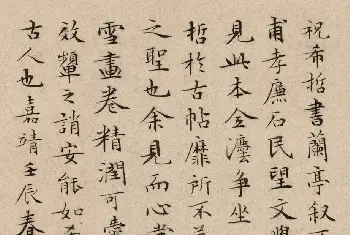 祝希哲書蘭亭叙
甫孝廉石民望文
見此本全灋爭坐
哲於古帖靡所不
之聖也余見而心
雪畫卷精潤可
效顰之誚安能如
古人也嘉靖壬辰春